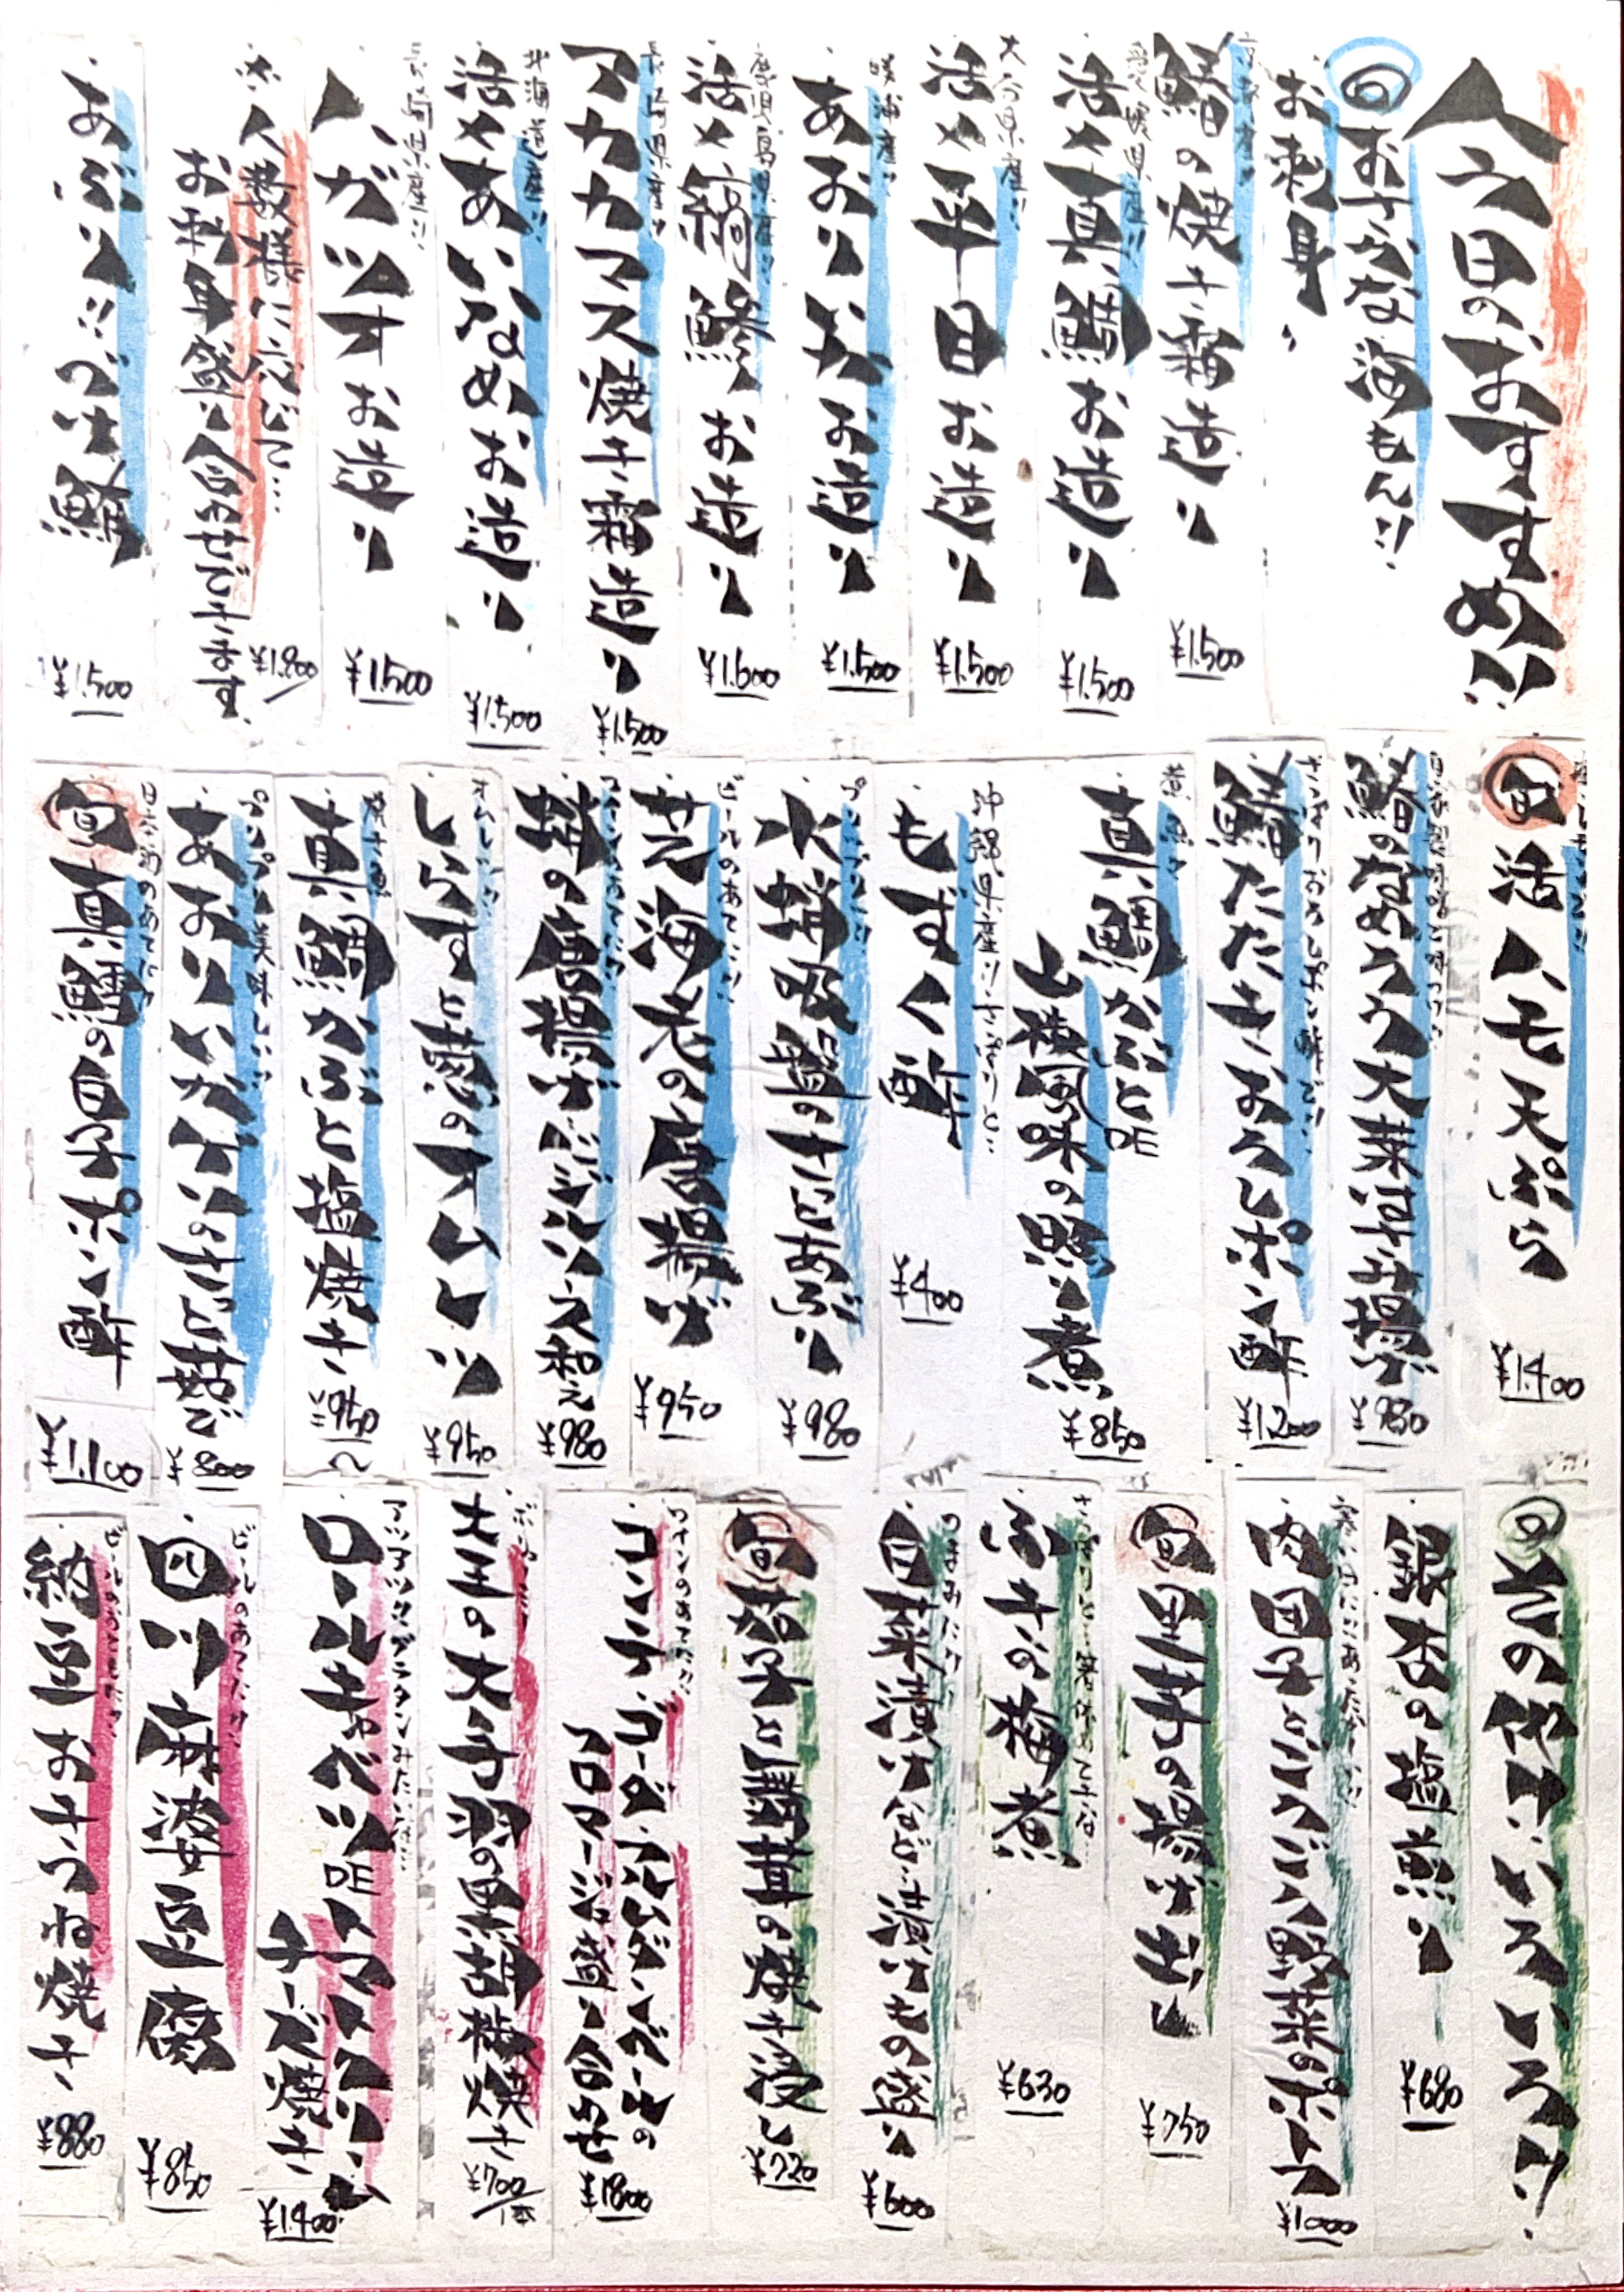 今日のおすすめ!!
旬 おさかな 海もん!!
お刺身
京都産!!
鰆の焼き霜造り
¥1.500
愛媛県産!!
活〆真鯛お造り
¥1.500
大分県産!!
活〆平目お造り
¥1.500
あおりいかお造り
¥1.500
鹿児島県産!!
活〆縞鯵お造り
¥1.600
長崎県産!!
アカカマス焼き霜造り
¥1.500
北海道産!!
活〆あいなめお造り
¥1.500
ハガツオお造り
¥1.500
人数様に応じて…
お刺身盛り合わせできます。
¥1.800
あぶり!!づけ鮪
¥1.500
旬 活ハモ天ぷら
¥1.400
鰆のなめろう大葉はさみ揚げ
¥980
鰆たたきおろしポン酢
¥1.200
真鯛かぶとDE
山椒風味の照り煮
¥850
沖縄県産!!さっぱりと…
もずく酢
¥400
プリップリ!!
水蛸吸盤のさっとあぶり
¥980
ビールのあてに!!
芝海老の唐揚げ
¥950
蛸の唐揚げバジルソース和え
¥980
しらすと葱のオムレツ
¥950
焼き魚
真鯛かぶと塩焼き
¥950〜
プリップリ美味しい!!
あおりいかげそのさっと茹で
¥800
日本酒のあてに!!
旬 真鱈の白子ポン酢
¥1.100
その他いろいろ!!
銀杏の塩煎り
¥680
肉団子とごろごろ野菜のポトフ
¥1000
旬 里芋の揚げ出し
¥750
さっぱりと…箸休めてきな
ふきの梅煮
¥630
つまみに!!
白菜漬けなど…漬けもの盛り
¥600
旬 茄子と舞茸の焼き浸し
¥720
ワインのあてに!!
コンテ、ゴーダ、アムダンガールの
フロマージュ盛り合わせ
¥1800
大王の大手羽の黒胡椒焼き
¥700/1本
アツアツ!!グラタンみたいな…
ロールキャベツDEトマトクリーム
チーズ焼き
¥1.400
ビールのあてに!!
四川麻婆豆腐
¥850
納豆おきつね焼き
¥880